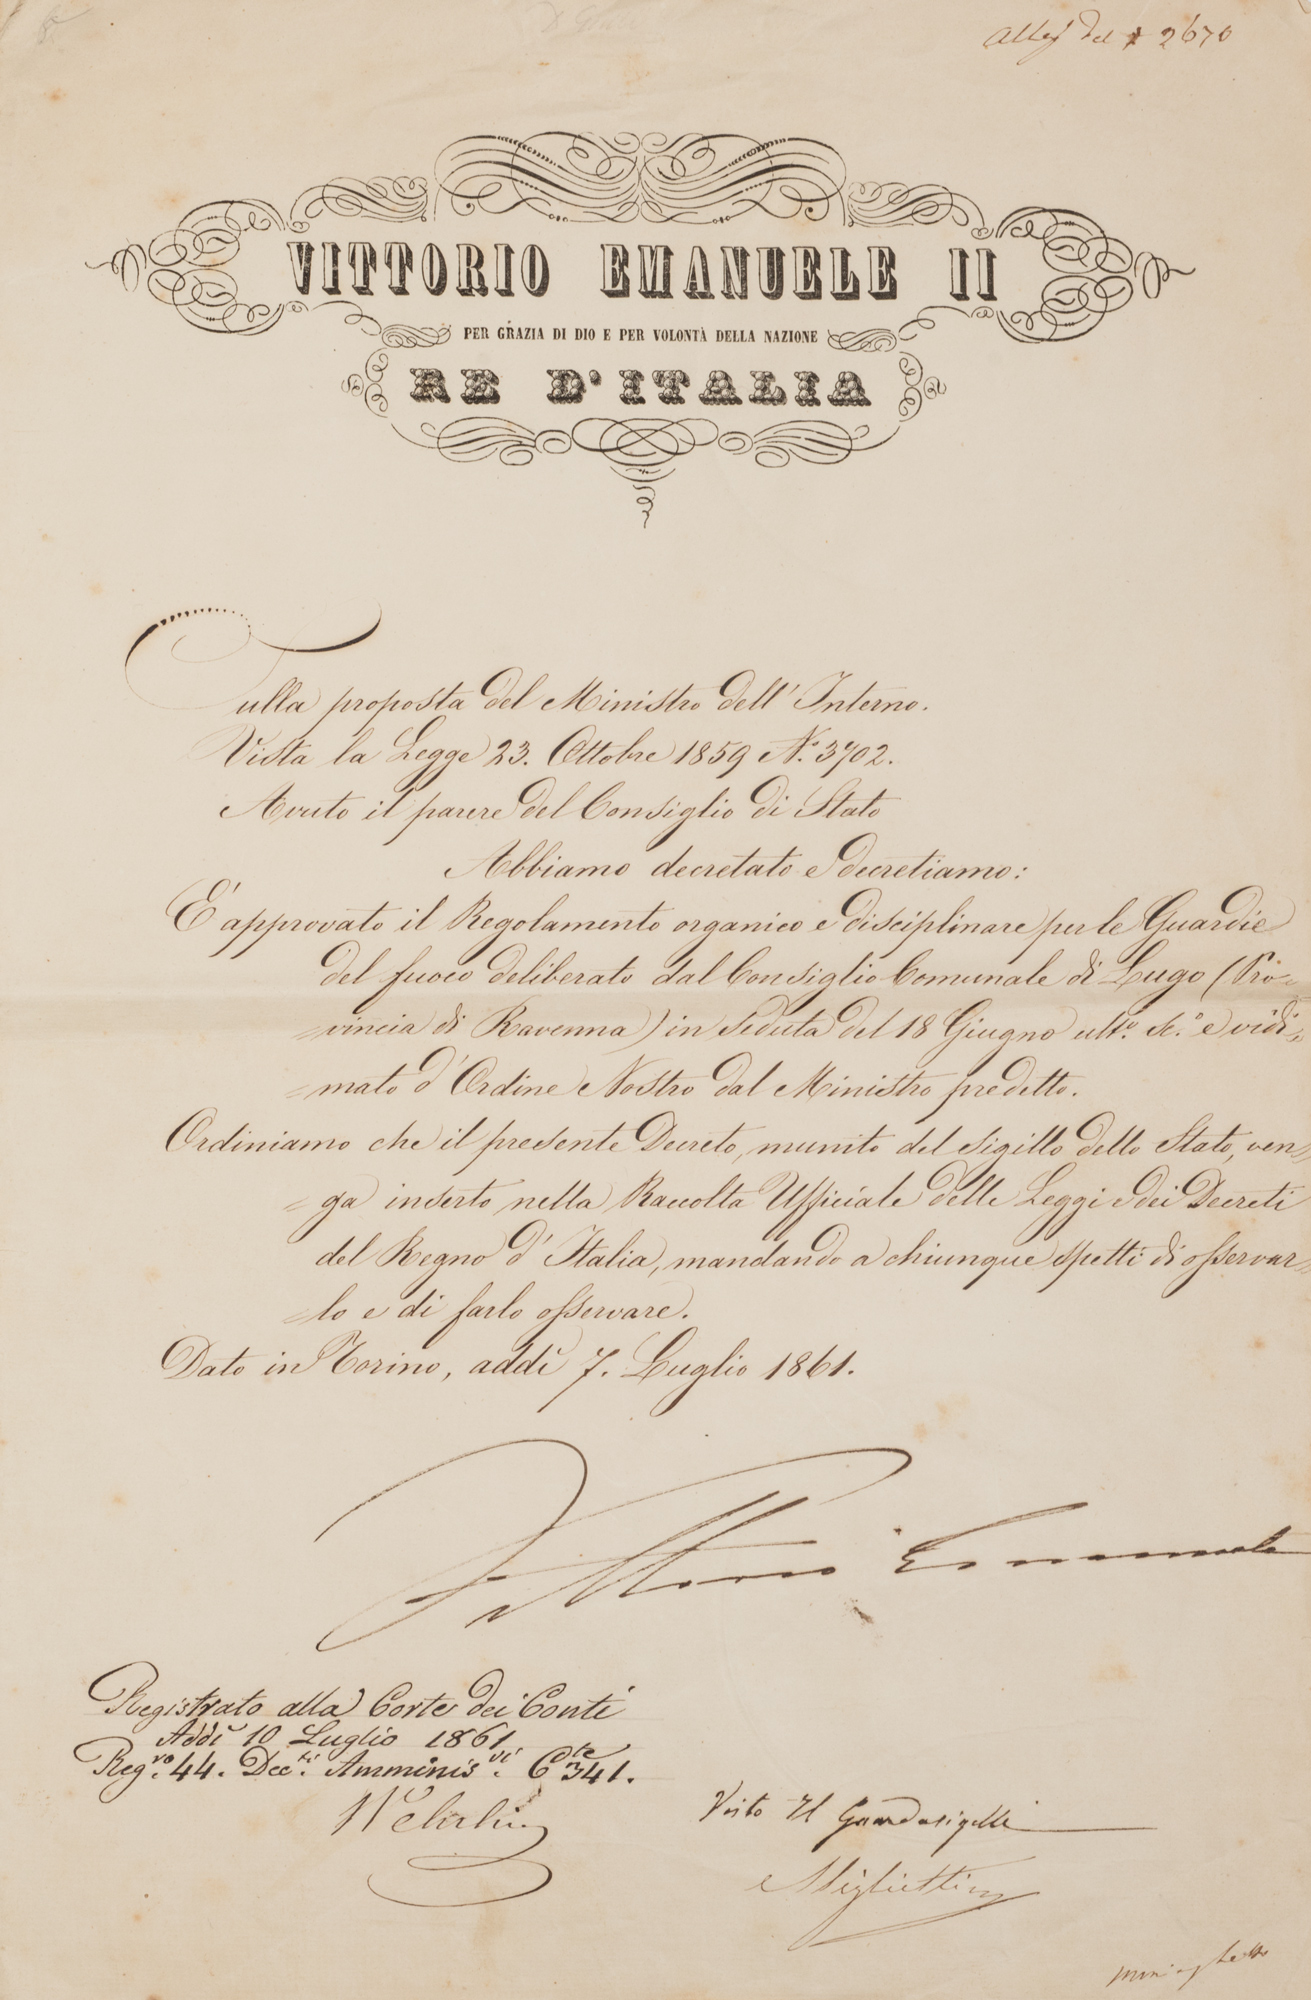 Alleg del 2670
VITTORIO EMANUELE II
PER GRAZIA DI DIO E PER VOLONTÀ DELLA NAZIONE
RE D'ITALIA
Sulla proposta del Ministro dell' Interno.
Vista la Legge 23. Ottobre 1859 N.° 3702.
Avuto il parere del Consiglio di Stato
Abbiamo decretato e decretiamo:
E' approvato il Regolamento organico e disciplinare per le Guardie
del fuoco deliberato dal Consiglio Comunale di Lugo (Pro=
=vincia di Ravenna) in seduta del 18 Giugno ult.° sc.° e vidi=
=mato d' Ordine Nostro dal Ministro predetto.
Ordiniamo che il presente Decreto, munito del sigillo dello Stato, ven=
=ga inserto nella Raccolta Ufficiale delle Leggi e dei Decreti
del Regno d' Italia, mandando a chiunque spetti di osservar=
=lo e di farlo osservare.
Dato in Torino, addì 7. Luglio 1861.
Vittorio Emanuele
Registrato alla Corte dei Conti
Addì 10 Luglio 1861
Reg.ro 44. Dec.ti Amminis.vi C.te 341.
Wehrlin
Visto Il Guardasigilli
Miglietti
Minghetti